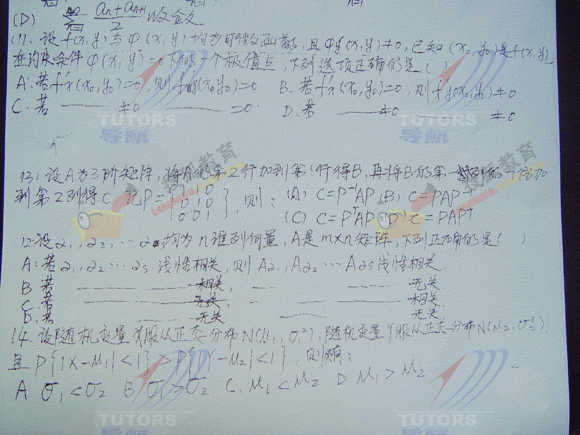 (D) ∑ (aₙ+aₙ₊₁)/2 收敛
11. 设f(x,y)与φ(x,y)均为可微函数,且φ'y(x,y)≠0,已知(x₀,y₀)是f(x,y)
在约束条件φ(x,y)=0下的一个极值点,下列选项正确的是( )
A. 若f'x(x₀,y₀)=0,则f'y(x₀,y₀)=0 B. 若f'x(x₀,y₀)=0,则f'y(x₀,y₀)≠0
C. 若 ——— ≠0 ——— =0. D. 若 ——— ≠0 ——— ≠0
13) 设A为3阶矩阵,将A的第2行加到第1行得B,再将B的第一列的
到第2列得C 记P= 1 1 0
0 1 0
0 0 1 ,则: (A) C=P⁻¹AP (B) C=PAP⁻¹
(C) C=PᵀAP (D) C=PAPᵀ
12. 设α₁,α₂,…αs均为n维列向量,A是m×n矩阵,下列正确的是( )
A. 若α₁,α₂…αs线性相关,则Aα₁,Aα₂…Aαs线性相关.
B 若 ——— 相关, ——— 无关.
C. 若 ——— 无关, ——— 相关.
D. 若 ——— 无关, ——— 无关.
14. 设随机变量X服从正态分布N(μ₁,σ₁²),随机变量Y服从正态分布N(μ₂,σ₂²),
且P{|X-μ₁|<1}>P{|Y-μ₂|<1},则有:
A σ₁<σ₂ B σ₁>σ₂ C. μ₁<μ₂ D μ₁>μ₂
TUTORS
导航
TUTORS
导航
教育
TUTORS
导航
TUTORS
导航